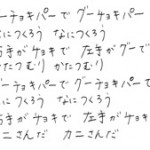 ーチョキパーで グーチョキパー
につくろう なにつくろう
手がチョキで 左手がグーで
たつむり かたつむり
ーチョキパーで グーチョキパーで
につくろう なにつくろう
手がチョキで 左手がチョキ
ニさんだ カニさんだ